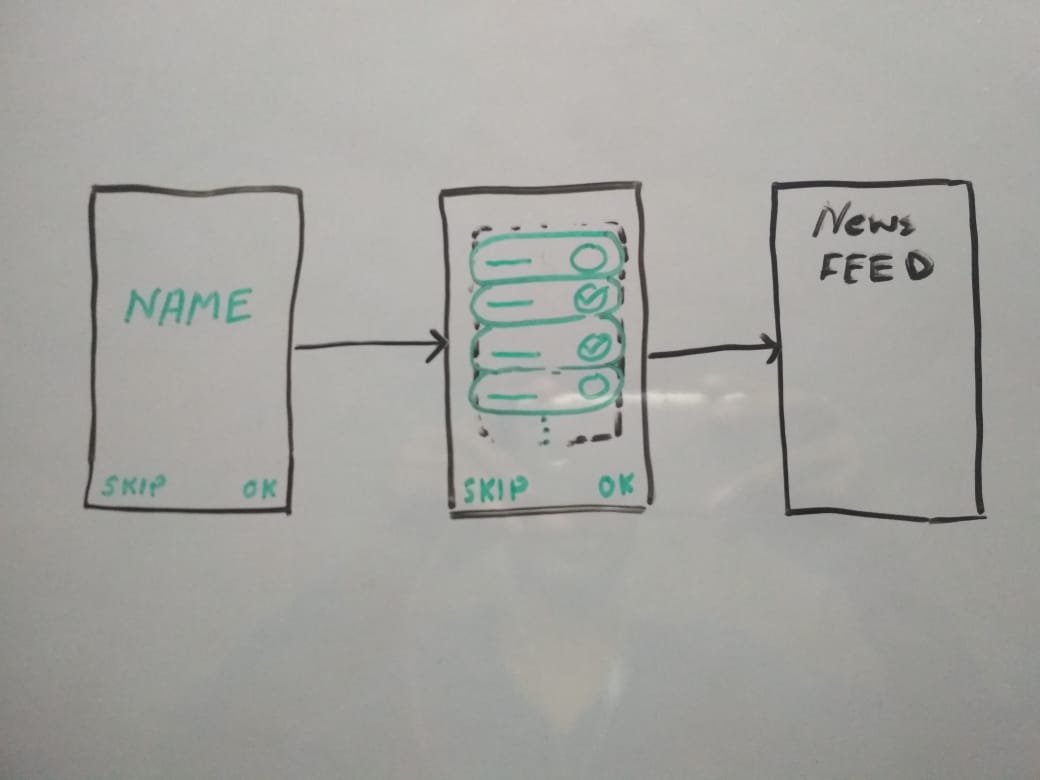 NAME
SKIP OK
SKIP OK
News
FEED